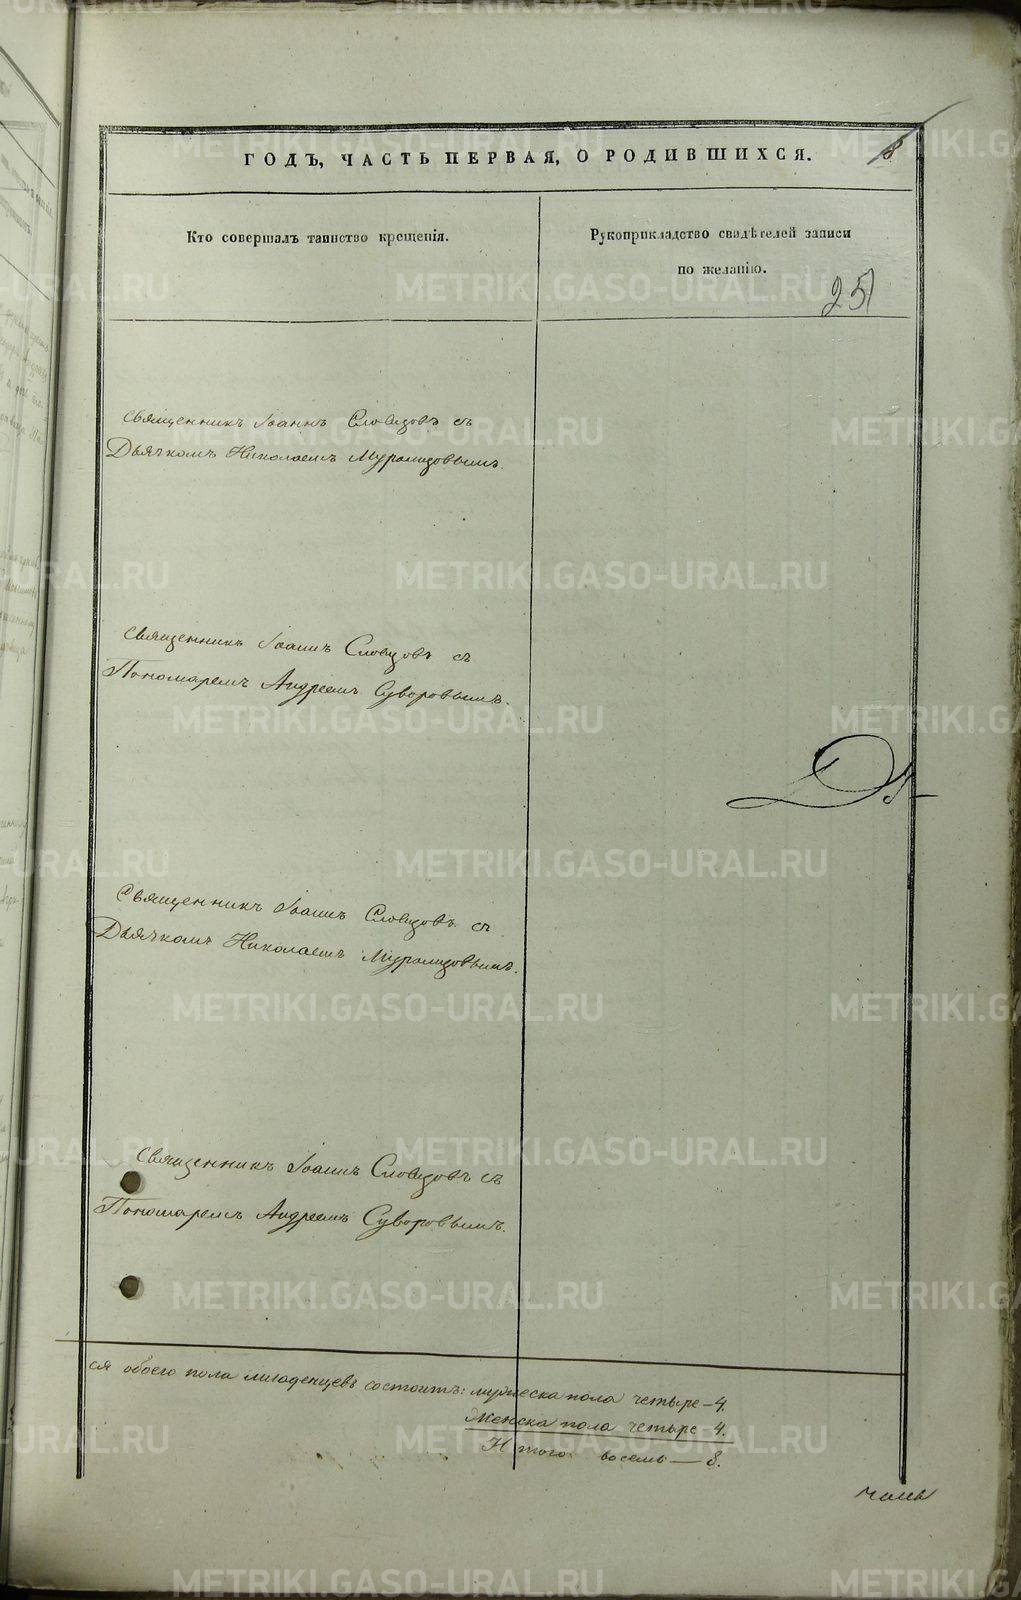 ГОДЪ, ЧАСТЬ ПЕРВАЯ, О РОДИВШИХСЯ.
8
Кто совершалъ таинство крещенія.
Рукоприкладство свидѣтелей записи
по желанію.
251
Священникъ Іоаннъ Словцовъ съ
Дьячкомъ Николаемъ Мурамзовымъ.
Священникъ Іоаннъ Словцовъ съ
Пономаремъ Андреемъ Суворовымъ.
Священникъ Іоаннъ Словцовъ съ
Дьячкомъ Николаемъ Мурамзовымъ.
Священникъ Іоаннъ Словцовъ съ
Пономаремъ Андреемъ Суворовымъ.
ся обоего пола младенцевъ состоитъ: мужеска пола четыре – 4.
Женска пола четыре 4.
Итого восемь — 8.
METRIKI.GASO-URAL.RU